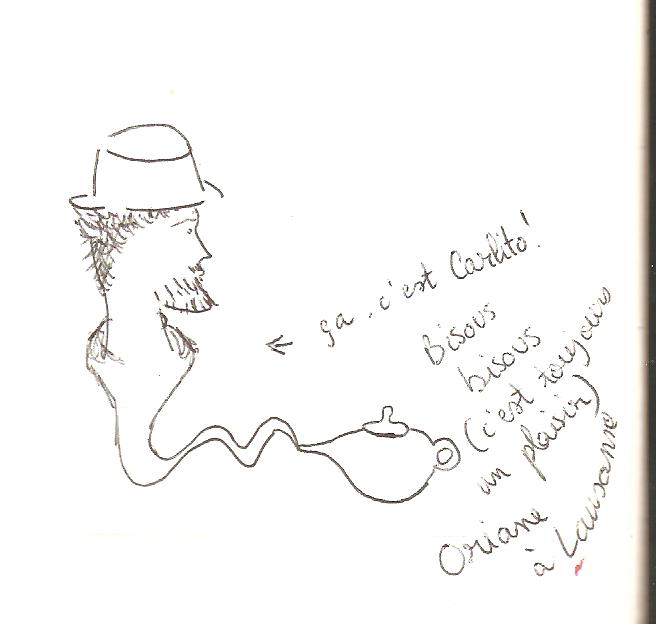 ← ça, c'est Carlito!
Bisous
bisous
(c'est toujours
un plaisir)
Oriane
à Lausanne